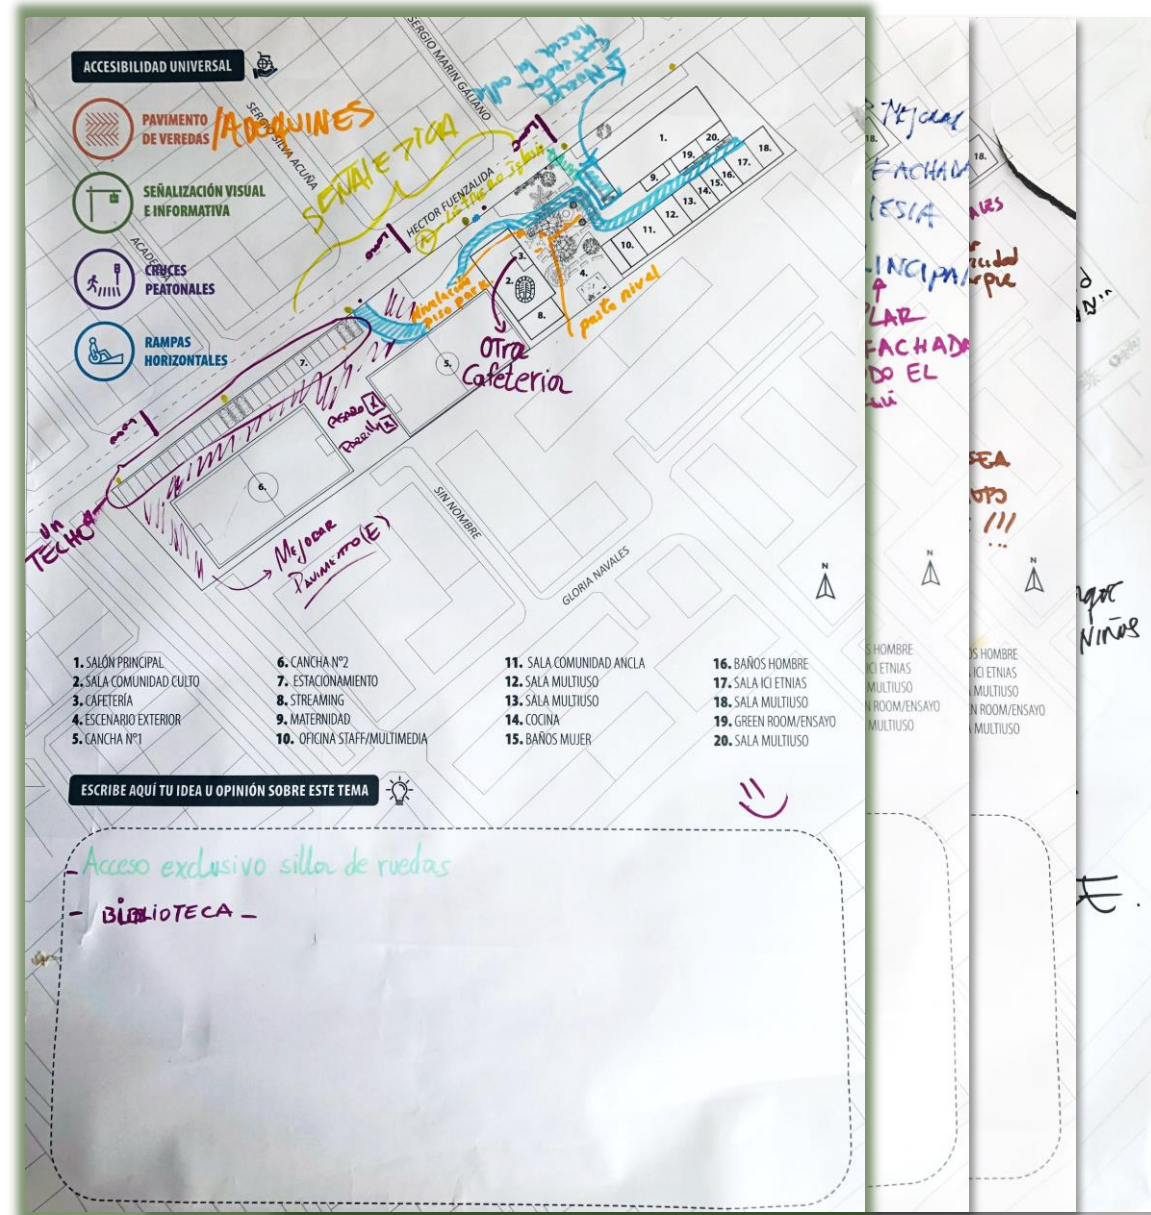 ACCESIBILIDAD UNIVERSAL
PAVIMENTO
DE VEREDAS
/ADOQUINES
SEÑALIZACIÓN VISUAL
E INFORMATIVA
CRUCES
PEATONALES
RAMPAS
HORIZONTALES
SERGIO MARIN GALIANO
SERGIO SILVA ACUÑA
ACADEMIA
HECTOR FUENZALIDA
SEÑALETICA
Nueva
entrada
hacia la calle
Letrero iglesia
Nivelación
piso park
pasto nivel
OTra
Cafeteria
1.
2.
3.
4.
5.
6.
7.
8.
9.
10.
11.
12.
13.
14.
15.
16.
17.
18.
19.
20.
18.
UN
TECHO
MEJORAR
PAVIMENTO (E)
SIN NOMBRE
GLORIA NAVALES
N
1. SALÓN PRINCIPAL
2. SALA COMUNIDAD CULTO
3. CAFETERÍA
4. ESCENARIO EXTERIOR
5. CANCHA Nº1
6. CANCHA Nº2
7. ESTACIONAMIENTO
8. STREAMING
9. MATERNIDAD
10. OFICINA STAFF/MULTIMEDIA
11. SALA COMUNIDAD ANCLA
12. SALA MULTIUSO
13. SALA MULTIUSO
14. COCINA
15. BAÑOS MUJER
16. BAÑOS HOMBRE
17. SALA ICI ETNIAS
18. SALA MULTIUSO
19. GREEN ROOM/ENSAYO
20. SALA MULTIUSO
ESCRIBE AQUÍ TU IDEA U OPINIÓN SOBRE ESTE TEMA
- Acceso exclusivo silla de ruedas
- BIBLIOTECA -
MEJORAR
18.
FACHADA
IESIA
INCIPAL
LAR
FACHADA
DO EL
N
S HOMBRE
ICI ETNIAS
MULTIUSO
N ROOM/ENSAYO
MULTIUSO
18.
ALES
SEA
!!!
N
OS HOMBRE
ICI ETNIAS
MULTIUSO
EN ROOM/ENSAYO
MULTIUSO
NIÑOS